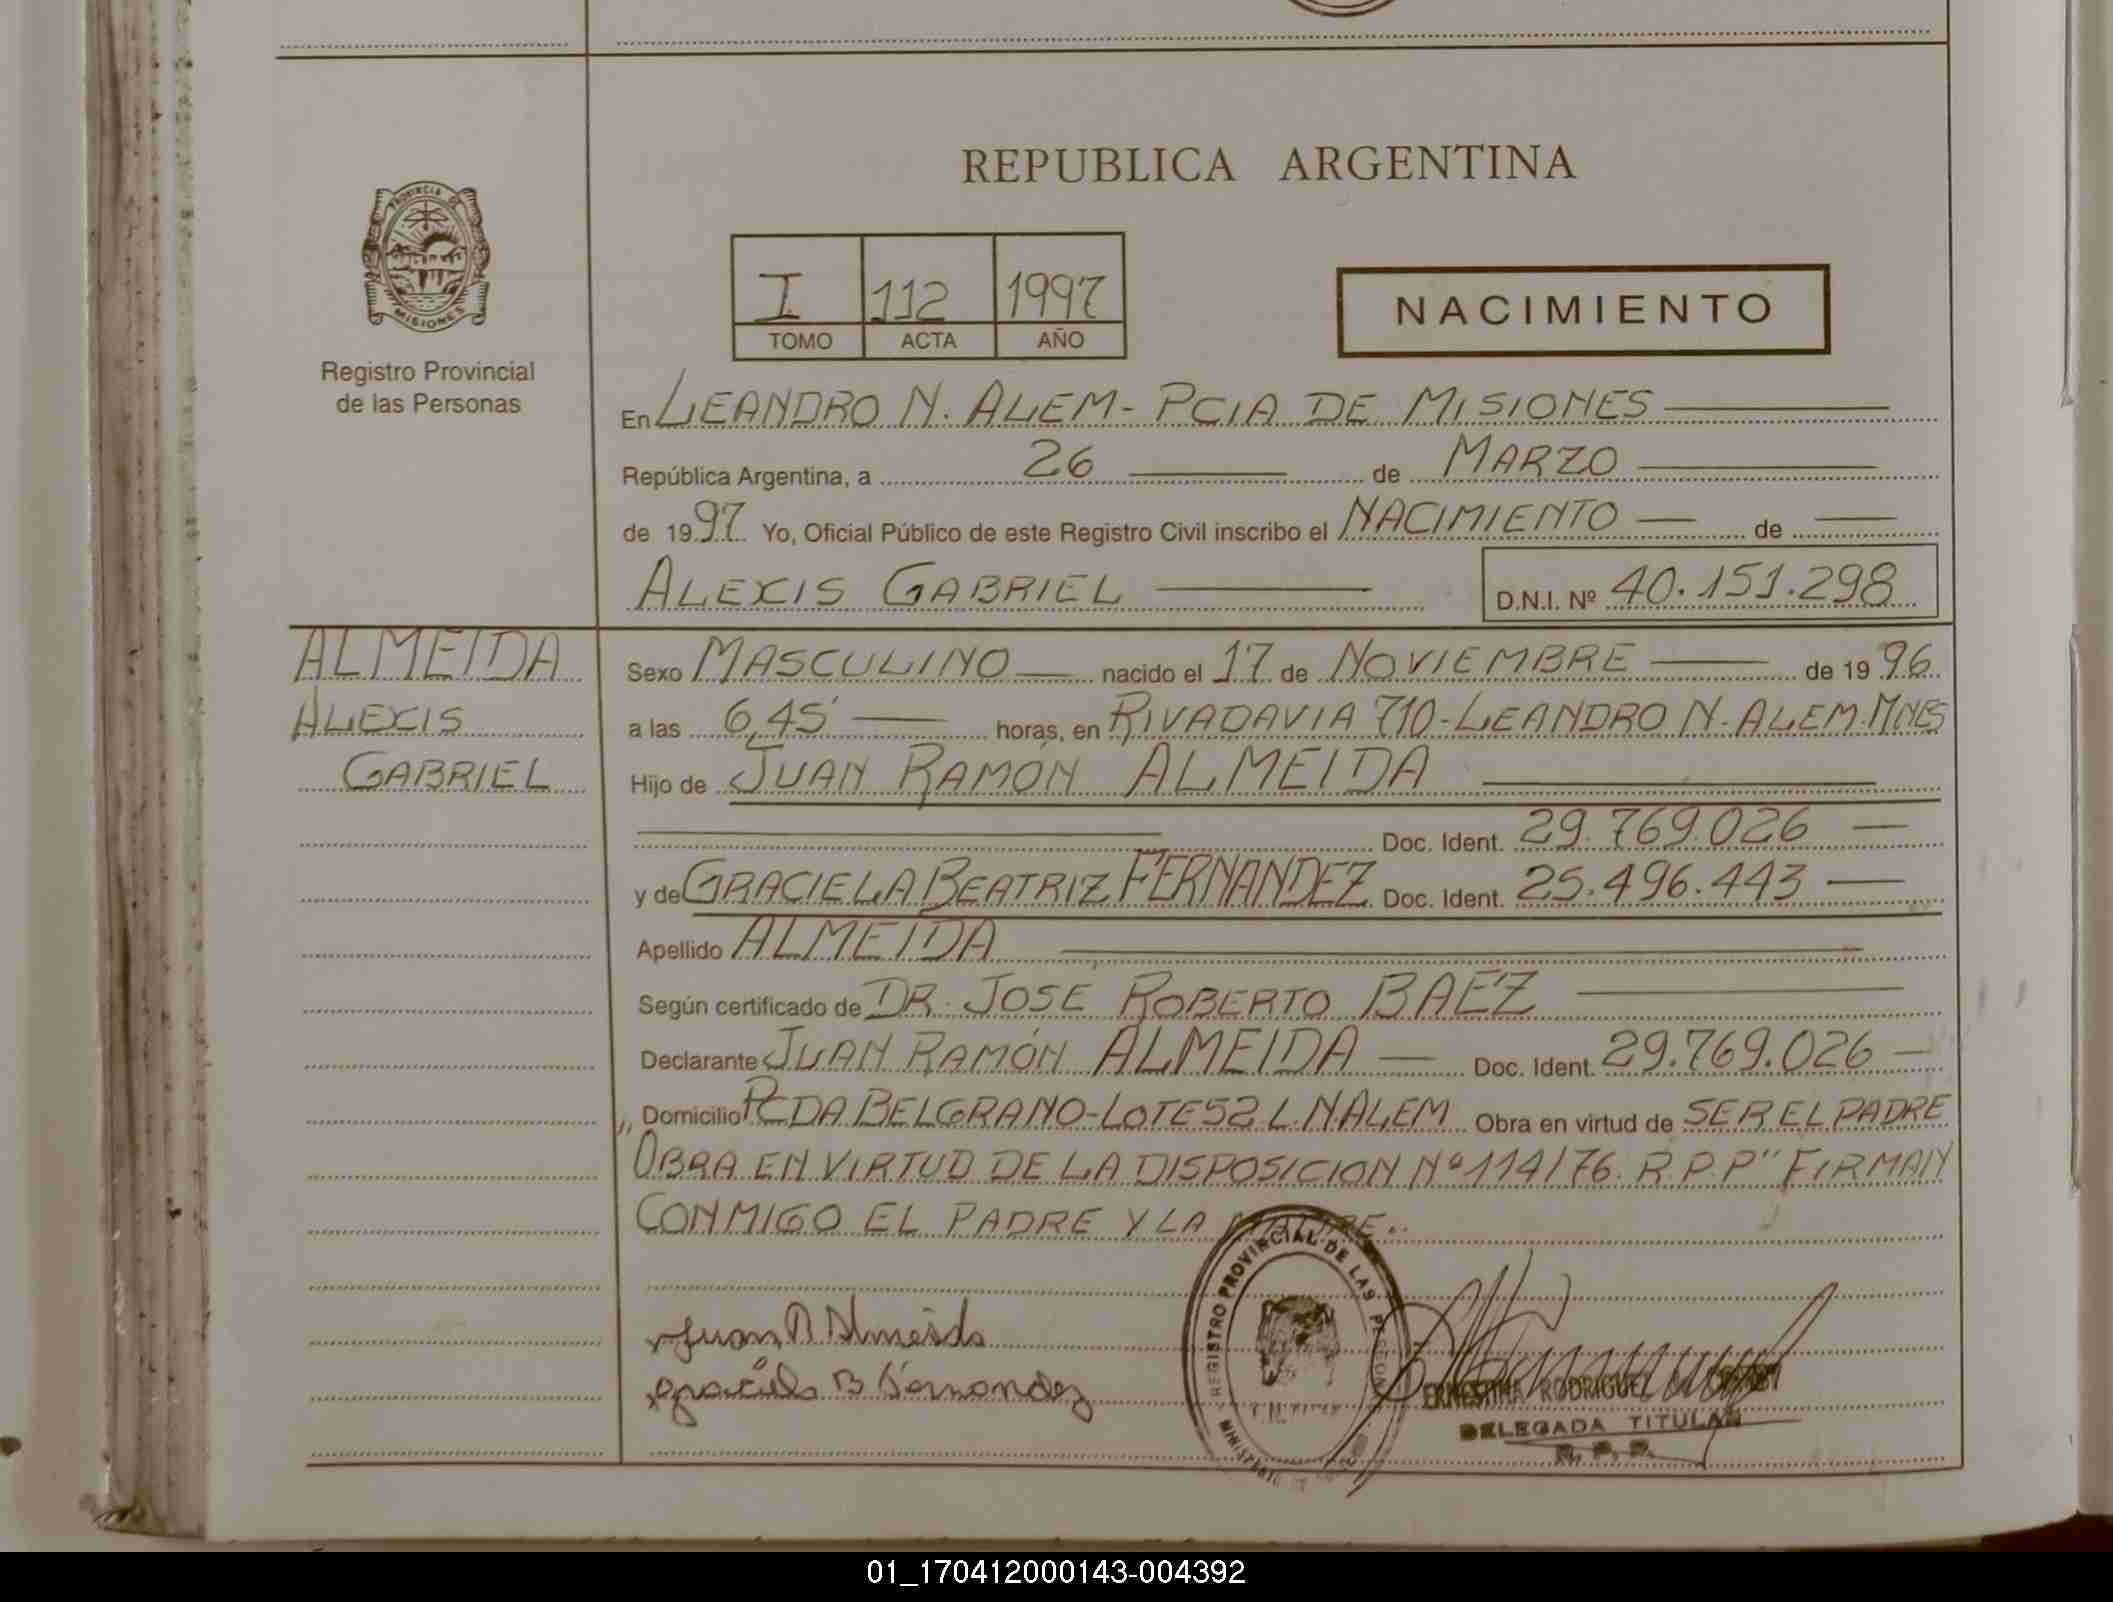 REPUBLICA ARGENTINA
PROVINCIA DE
MISIONES
Registro Provincial
de las Personas
I 112 1997
TOMO ACTA AÑO
NACIMIENTO
En LEANDRO N. ALEM - PCIA DE MISIONES
República Argentina, a 26 de MARZO
de 1997 Yo, Oficial Público de este Registro Civil inscribo el NACIMIENTO de
ALEXIS GABRIEL
D.N.I. Nº 40.151.298
ALMEIDA
ALEXIS
GABRIEL
Sexo MASCULINO nacido el 17 de NOVIEMBRE de 1996
a las 6,45' horas, en RIVADAVIA 710-LEANDRO N. ALEM-MNES
Hijo de JUAN RAMÓN ALMEIDA
Doc. Ident. 29.769.026
y de GRACIELA BEATRIZ FERNANDEZ Doc. Ident. 25.496.443
Apellido ALMEIDA
Según certificado de DR. JOSE ROBERTO BAEZ
Declarante JUAN RAMÓN ALMEIDA Doc. Ident. 29.769.026
,, Domicilio PCDA BELGRANO-LOTE 52 L.N.ALEM Obra en virtud de SER EL PADRE
OBRA EN VIRTUD DE LA DISPOSICION Nº 114/76. R.P.P" FIRMAN
CONMIGO EL PADRE Y LA MADRE..
Juan R Almeida
Graciela B Fernandez
REGISTRO PROVINCIAL DE LAS PERSONAS
ERNESTINA RODRIGUEZ
DELEGADA TITULAR
R. P. P.
01_170412000143-004392